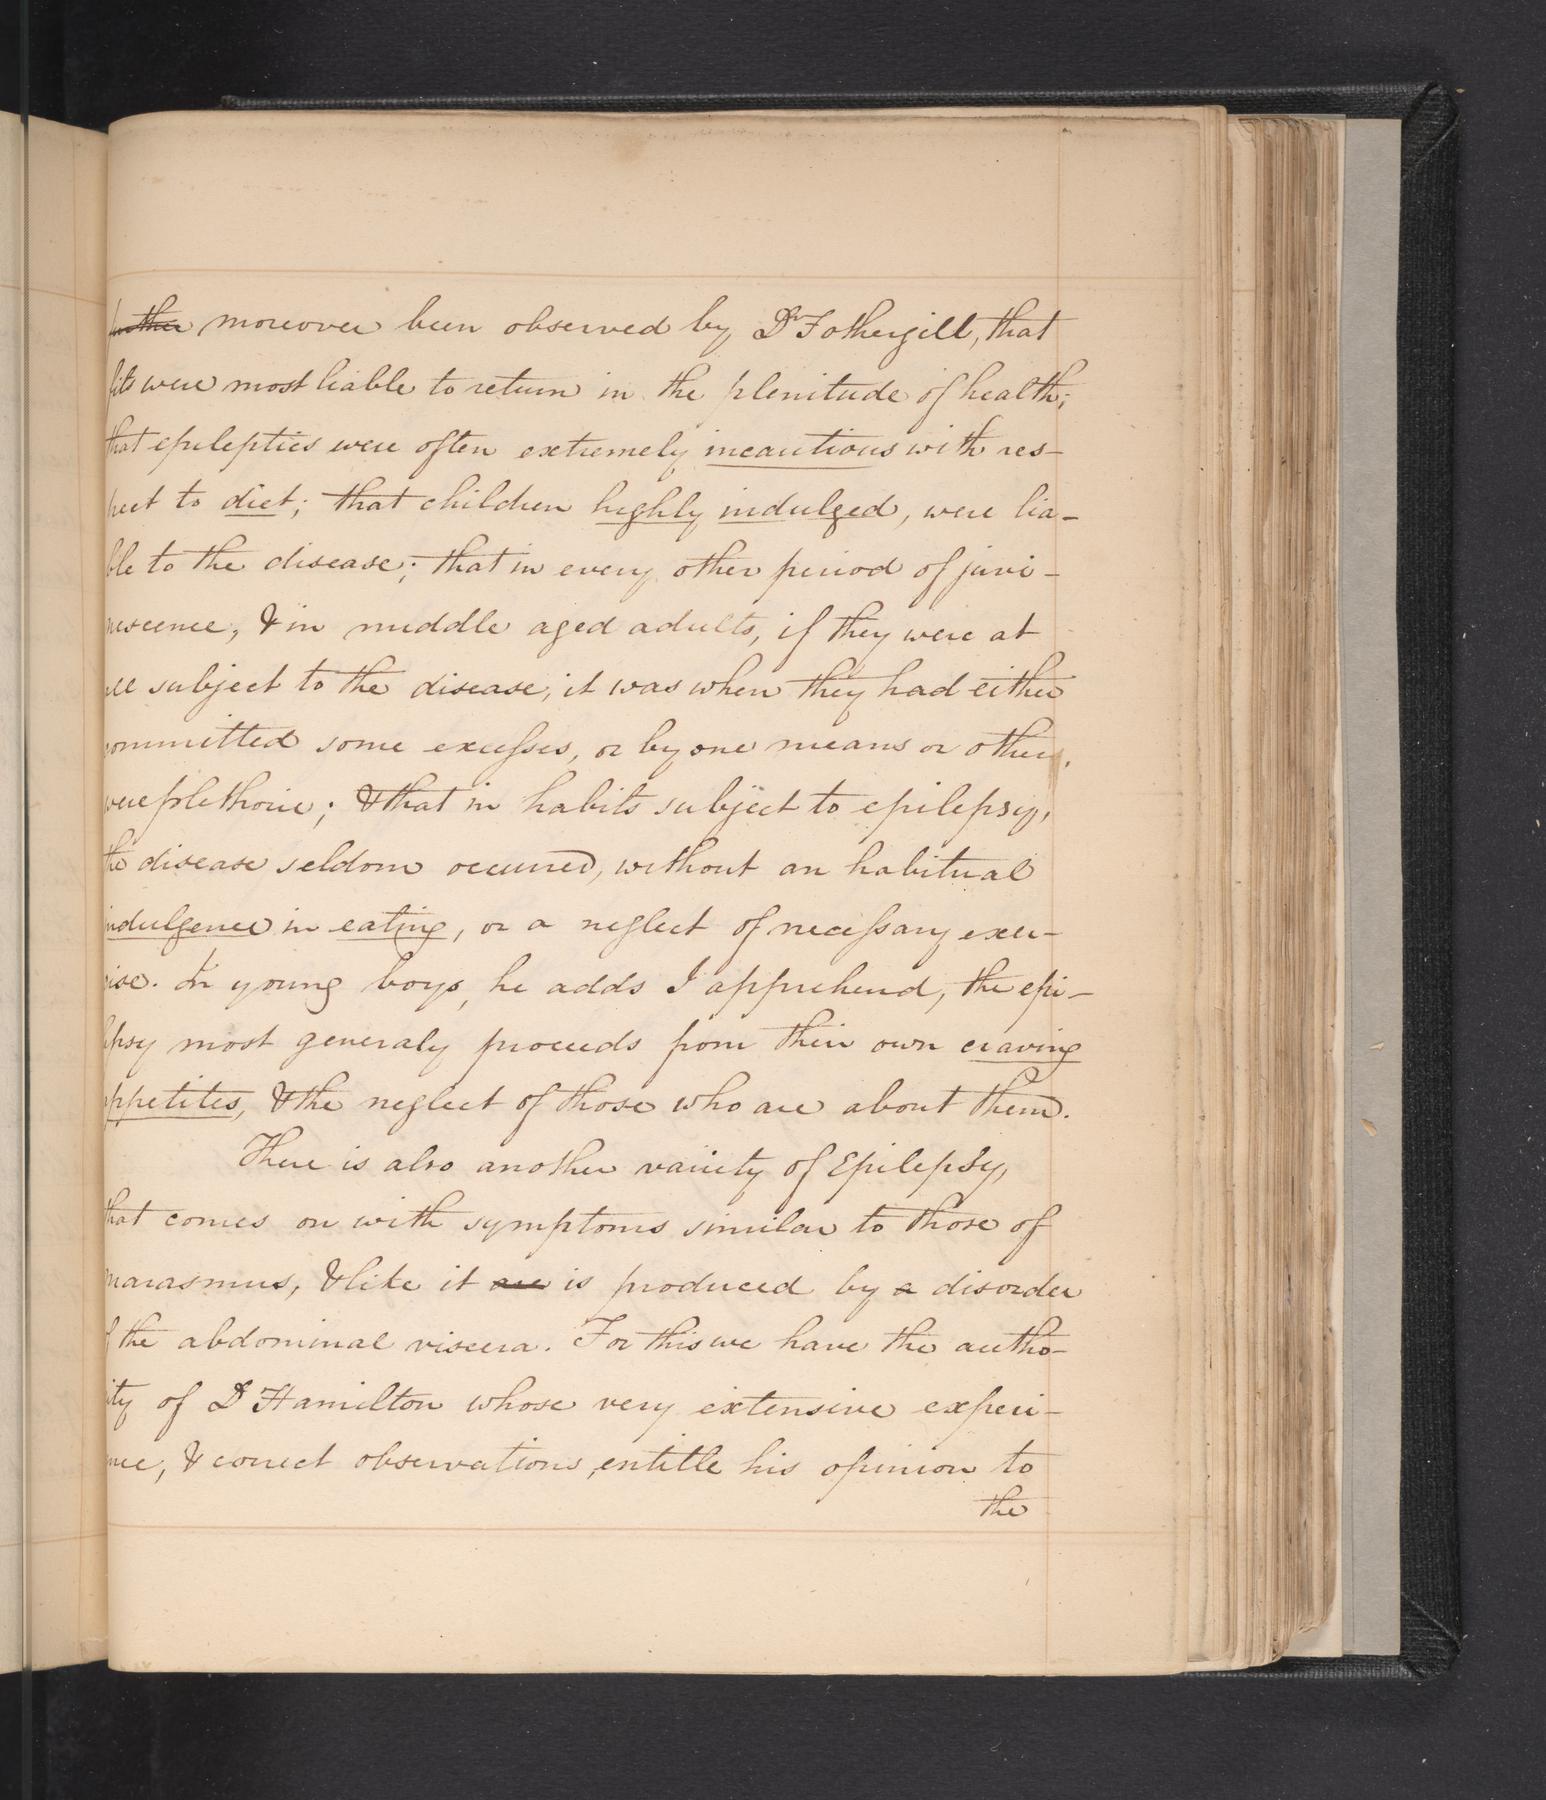 further moreover been observed by Dr Fothergill, that
fits were most liable to return in the plenitude of health;
that epileptics were often extremely incautious with res-
pect to diet; that children highly indulged, were lia-
ble to the disease; that in every other period of juve-
nescence, & in middle aged adults, if they were at
all subject to the disease, it was when they had either
committed some excesses, or by one means or other,
were plethoric; & that in habits subject to epilepsy,
the disease seldom occurred, without an habitual
indulgence in eating, or a neglect of necessary exer-
cise. In young boys, he adds I apprehend, the epi-
lepsy most generaly proceeds from their own craving
appetites, & the neglect of those who are about them.
There is also another variety of Epilepsy,
that comes on with symptoms similar to those of
marasmus, & like it are is produced by a disorder
of the abdominal viscera. For this we have the autho-
rity of Dr Hamilton whose very extensive experi-
ence, & correct observations, entitle his opinion to
the